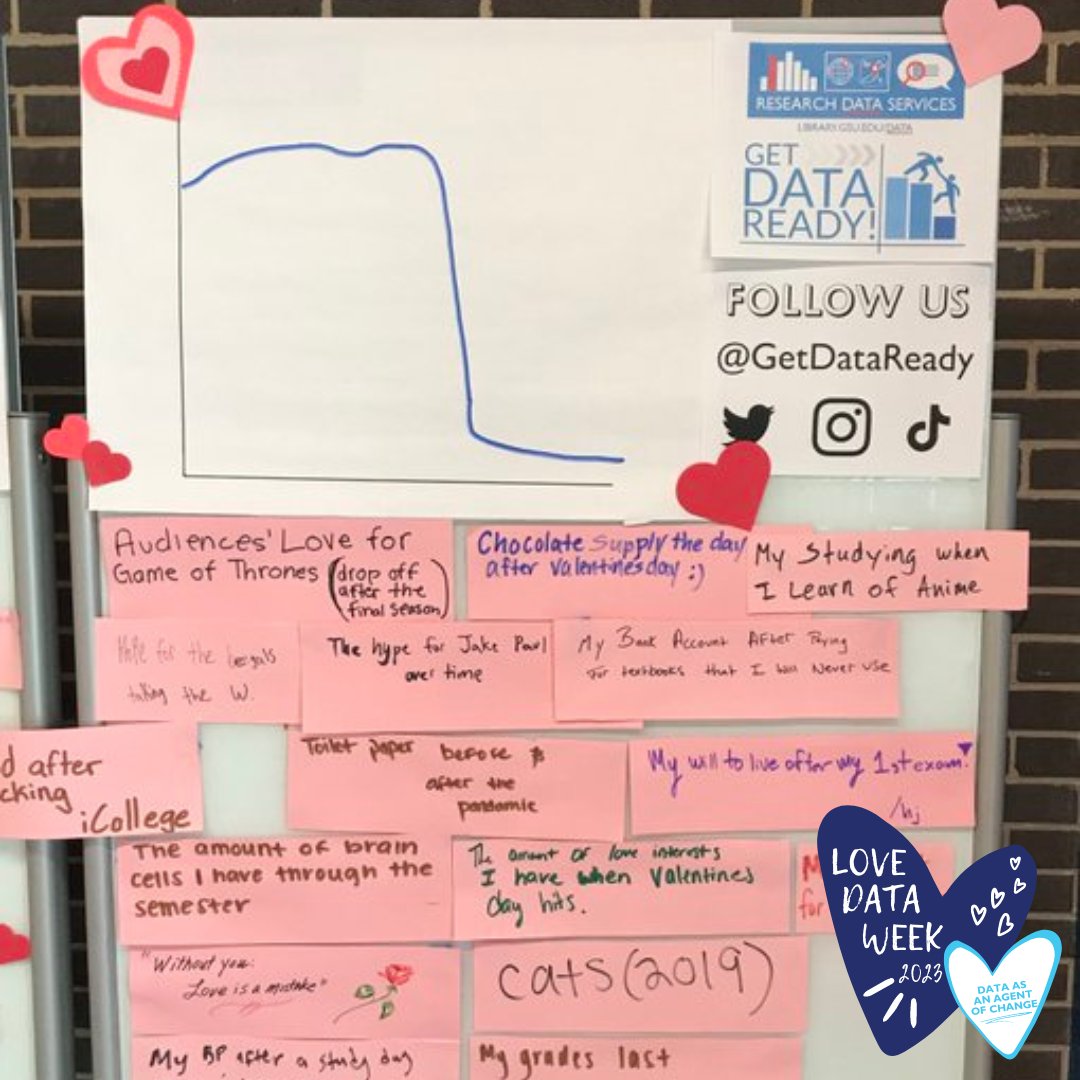 RESEARCH DATA SERVICES
LIBRARY.GSU.EDU/DATA
GET
DATA
READY!
FOLLOW US
@GetDataReady
Audiences' Love for
Game of Thrones (drop off
after the
final season)
Chocolate supply the day
after valentines day :)
My Studying when
I Learn of Anime
Hype for the bengals
taking the W.
The hype for Jake Paul
over time
My Bank Account After Paying
for textbooks that I will Never use
d after
cking
iCollege
Toilet paper before &
after the
pandemic
My will to live after my 1st exam!
/hj
The amount of brain
cells I have through the
semester
The amount of love interests
I have when Valentines
day hits.
M
for
"Without you:
Love is a mistake"
cats (2019)
My BP after a study day
My grades last
LOVE
DATA
WEEK
2023
DATA AS
AN AGENT
OF CHANGE